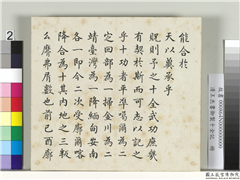 能合於
天以冀承乎
貺則予之十全武功庶幾
有契於斯而可志以記之
乎十功者平準噶爾為二
定回部為一掃金川為二
靖臺灣為一降緬甸安南
各一即今二次受廓爾喀
降合為十其內地之三叛
么麼弗屑數也前己酉廓
國立故宮博物院